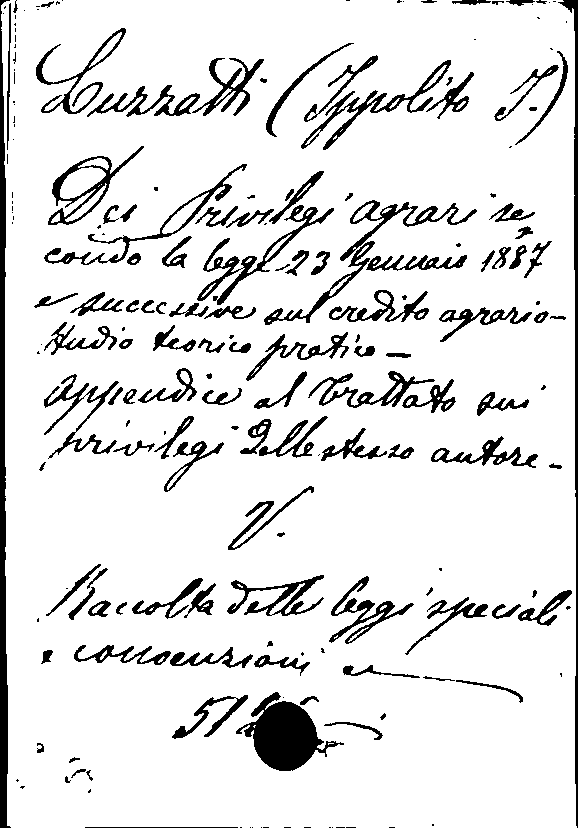 Luzzatti (Ippolito I.)
Dei Privilegi agrari se
condo la legge 23 Gennaio 1887
e successive sul credito agrario-
studio teorico pratico -
appendice al trattato sui
privilegi dello stesso autore -
V.
Raccolta delle leggi speciali
e convenzioni
51